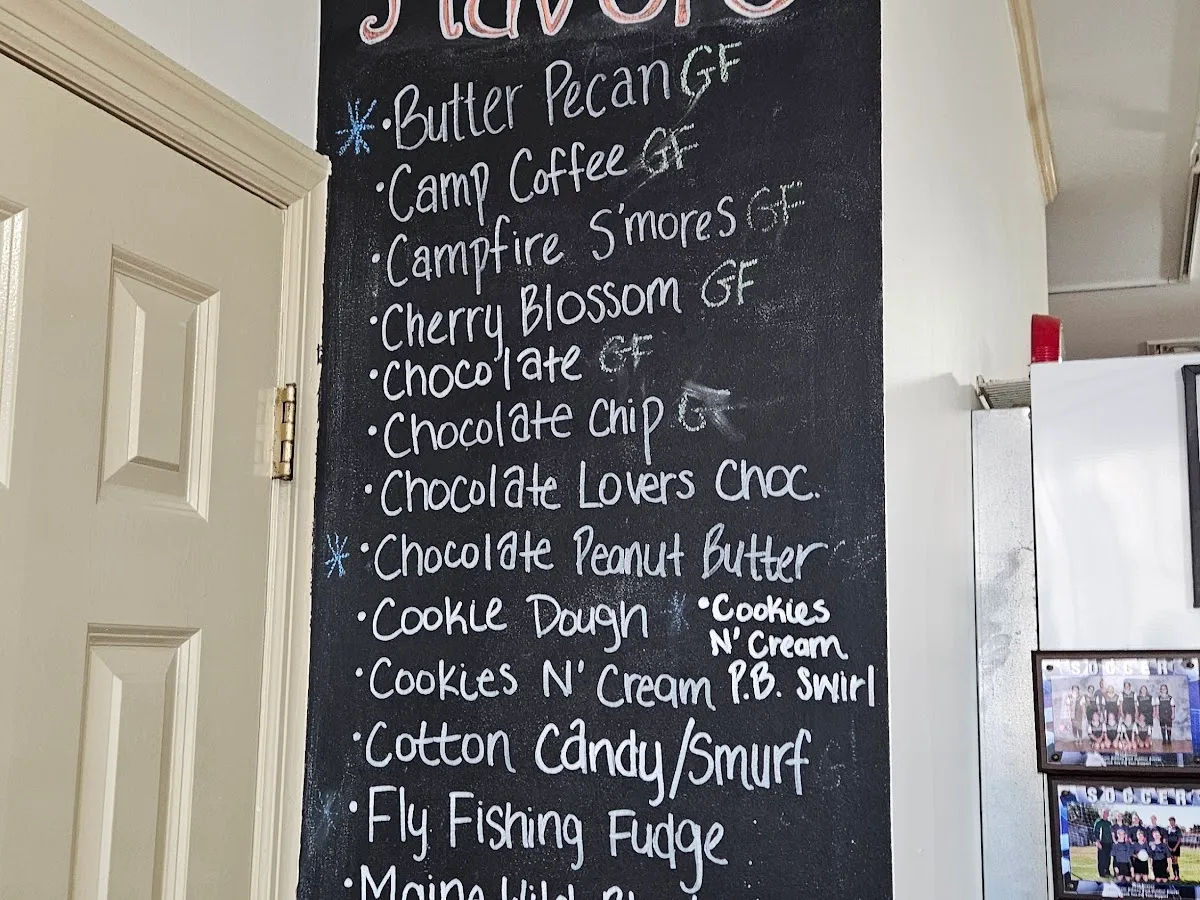 Flavors
* • Butter Pecan GF
• Camp Coffee GF
• Campfire S'mores GF
• Cherry Blossom GF
• Chocolate GF
• Chocolate Chip GF
• Chocolate Lovers Choc.
* • Chocolate Peanut Butter
• Cookie Dough
* • Cookies
N' Cream
P.B. Swirl
• Cookies N' Cream
• Cotton Candy/Smurf
• Fly Fishing Fudge
• Maine Wild
SOCCER
SOCCER